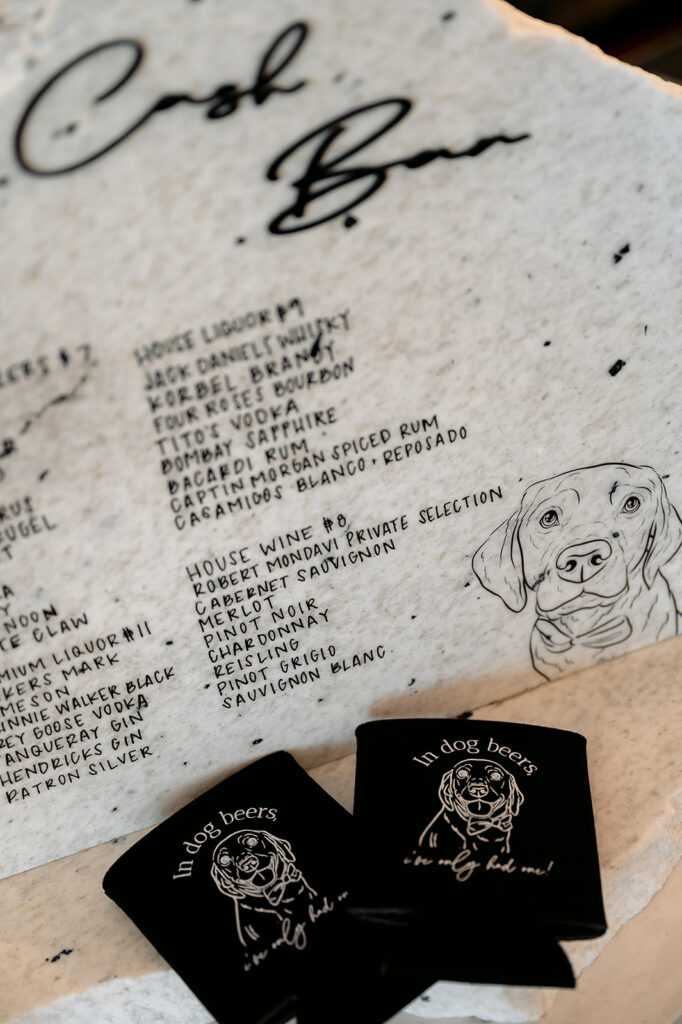 Cash
Bar
HOUSE LIQUOR $9
JACK DANIELS WHISKY
KORBEL BRANDY
FOUR ROSES BOURBON
TITO'S VODKA
BOMBAY SAPPHIRE
BACARDI RUM
CAPTIN MORGAN SPICED RUM
CASAMIGOS BLANCO + REPOSADO
HOUSE WINE $8
ROBERT MONDAVI PRIVATE SELECTION
CABERNET SAUVIGNON
MERLOT
PINOT NOIR
CHARDONNAY
REISLING
PINOT GRIGIO
SAUVIGNON BLANC
ERS $7
RUS
UGEL
NOON
TE CLAW
MIUM LIQUOR $11
KERS MARK
MESON
HNNIE WALKER BLACK
REY GOOSE VODKA
ANQUERAY GIN
HENDRICKS GIN
PATRON SILVER
In dog beers,
i've only had one!
In dog beers,
i've only had on